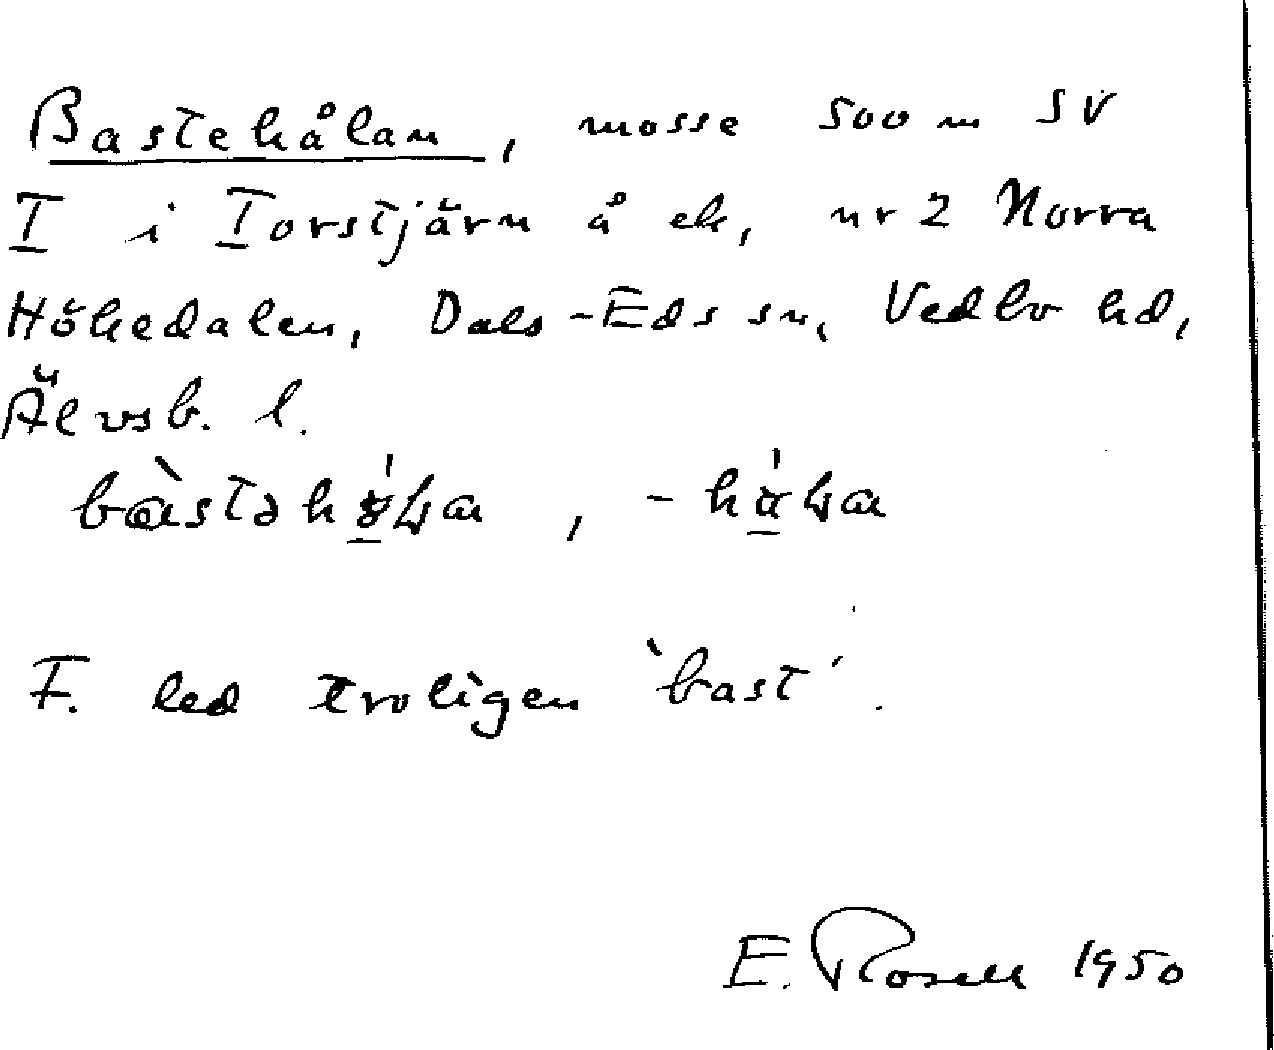 Bastehålan, mosse 500 m SV
T i Torstjärn å ek, nr 2 Norra
Hökedalen, Dals-Eds sn, Vedbo hd,
Älvsb. l.
F. led troligen 'bast'.
E. Rosell 1950